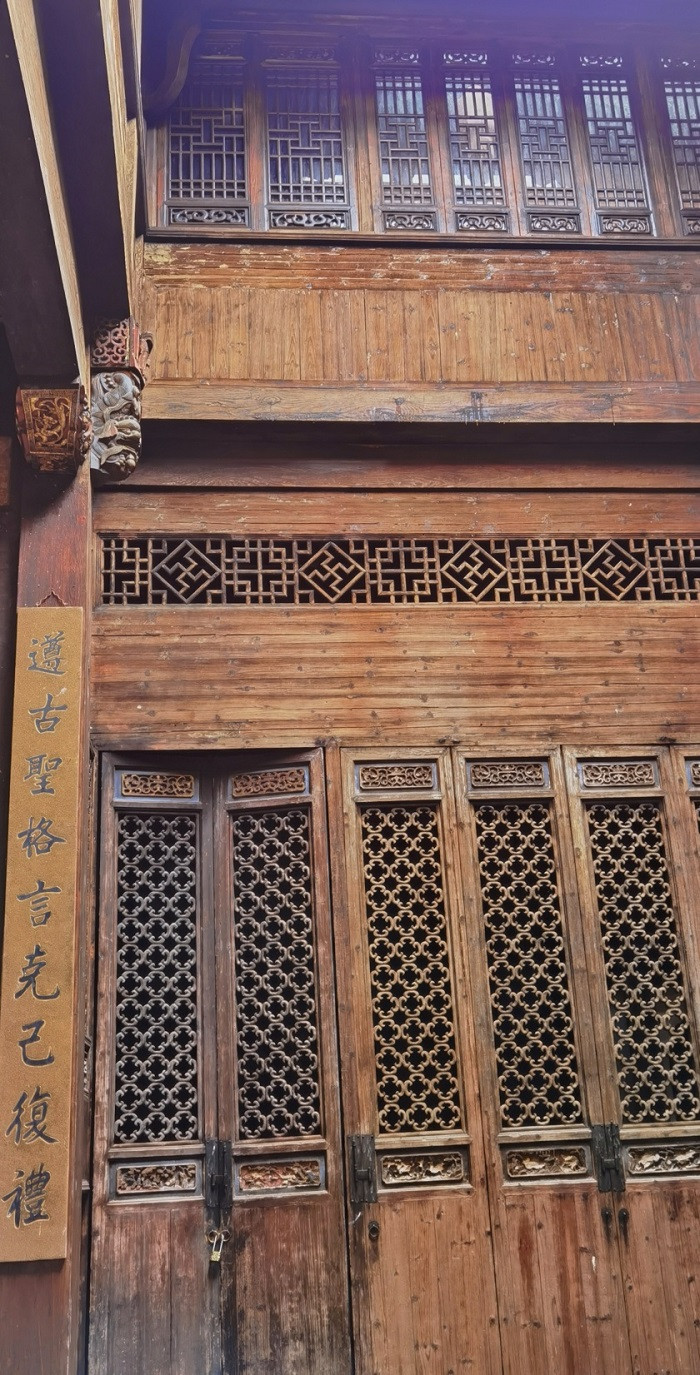 遵古聖格言克己復禮